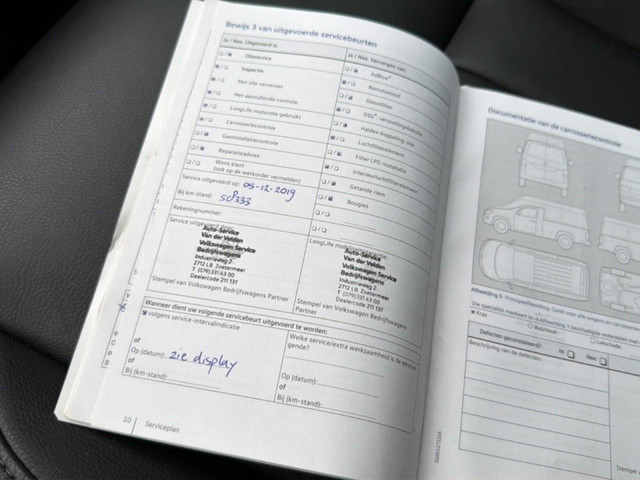 Bewijs 3 van uitgevoerde servicebeurten
Ja / Nee, Uitgevoerd is:
Olieservice
Inspectie
Met olie verversen
Met aanvullende controle
LongLife motorolie gebruikt
Carrosseriecontrole
Geïnstalleerdcontrole
Reparatieadvies
Wens klant
(ook op de werkorder vermelden)
Service uitgevoerd op: 05-12-2019
Bij km-stand:
Rekeningnummer:
Service uitgevoerd door:
Auto-Service
Van der Velden
Volkswagen Service
Bedrijfswagens
Industrieweg 2
2712 LB Zoetermeer
T (079) 331 43 00
Dealercode 211 131
Stempel van Volkswagen Bedrijfswagens Partner
Ja / Nee, Vervangen zijn:
AdBlue®
Remvloeistof
Dieselfilter
Haldex-koppeling: olie
Luchtfilterelement
Filter LPG-installatie
Interieurluchtfilterelement
Getande riem
Bougies
Auto-Service
Van der Velden
Volkswagen Service
Bedrijfswagens
Industrieweg 2
2712 LB Zoetermeer
T (079) 331 43 00
Dealercode 211 131
Stempel van Volkswagen Bedrijfswagens
Partner
Wanneer dient uw volgende servicebeurt uitgevoerd te worden:
volgens service-intervalindicatie
of
Op (datum): zie display
of
Bij (km-stand):
Welke service/extra werkzaamheid is de eerstvol-
gende?
Op (datum):
of
Bij (km-stand):
10 Serviceplan
Documentatie van de carrosseriecontrole
Afbeelding 5
Kras
Defecten geconstateerd:
Ja:
Nee:
Beschrijving van de defecten:
Stempel